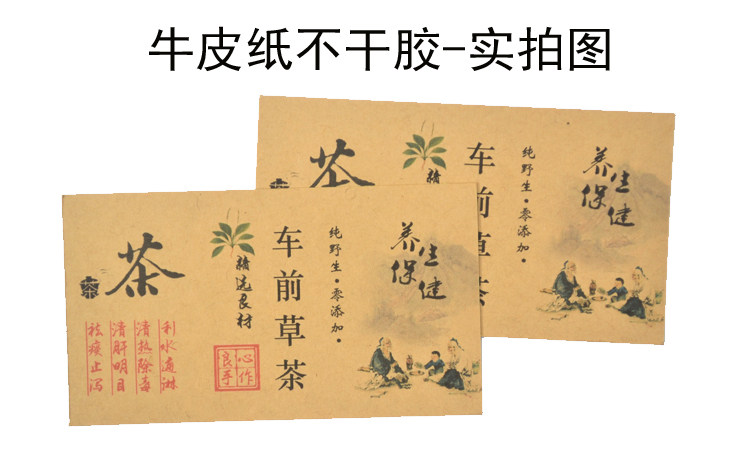 牛皮纸不干胶-实拍图
茶
精
车前草茶
纯野生·零添加·
养生
保健
茶
茶
利水通淋
清热除毒
清肝明目
祛痰止泻
精选良材
良心
手作
车前草茶
纯野生·零添加·
养生
保健